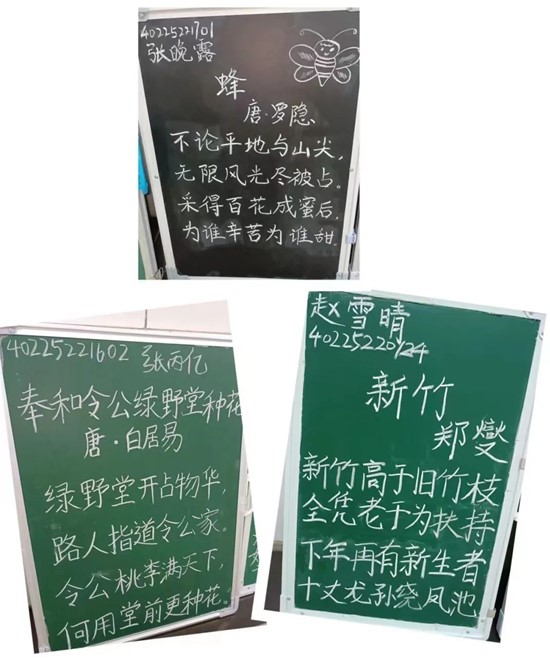 40225221701
张晚露
蜂
唐·罗隐
不论平地与山尖，
无限风光尽被占。
采得百花成蜜后，
为谁辛苦为谁甜
40225221602 张丙亿
奉和令公绿野堂种花
唐·白居易
绿野堂开占物华，
路人指道令公家。
令公桃李满天下，
何用堂前更种花。
赵雪晴
40225220124
新竹
郑燮
新竹高于旧竹枝
全凭老于为扶持
下年再有新生者
十丈龙孙绕凤池